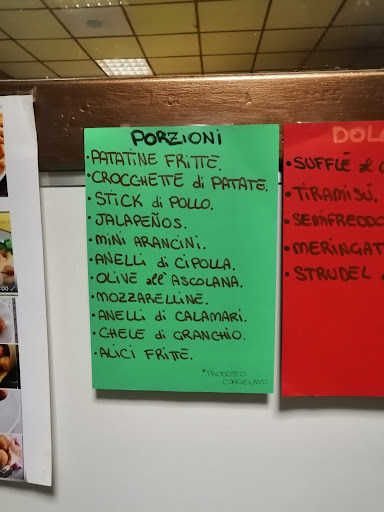 PORZIONI
• PATATINE FRITTE.
• CROCCHETTE di PATATE.
• STICK di POLLO.
• JALAPEÑOS.
• MINI ARANCINI.
• ANELLI di CIPOLLA.
• OLIVE all'ASCOLANA.
• MOZZARELLINE.
• ANELLI di CALAMARI.
• CHELE di GRANCHIO.
• ALICI FRITTE.
*PRODOTTO
CONGELATO
DOL
• SUFFLÈ al
• TIRAMISÙ.
• SEMIFREDDO
• MERINGAT
• STRUDEL